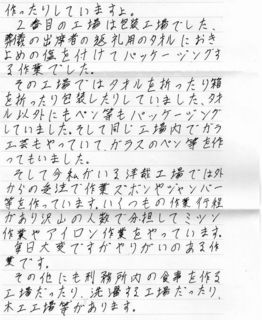 作ったりしていますよ。
２番目の工場は包装工場でした、
葬儀の出席者の返礼用のタオルにおき
よめの塩を付けてパッケージングす
る作業でした。
その工場ではタオルを折ったり箱
を折ったり包装したりしていました、タオ
ル以外にもペン等もパッケージング
していました。そして同じ工場内でガラ
ス工芸もやっていて、ガラスのペン等を作
ってもいました。
そして今私がいる洋裁工場では外
からの受注で作業ズボンやジャンパー
等を作っています。いくつもの作業行程
があり沢山の人数で分担してミシン
作業やアイロン作業をやっています。
毎日大変ですがやりがいのある作
業です。
その他にも刑務所内の食事を作る
工場だったり、洗濯する工場だったり、
木工工場等があります。